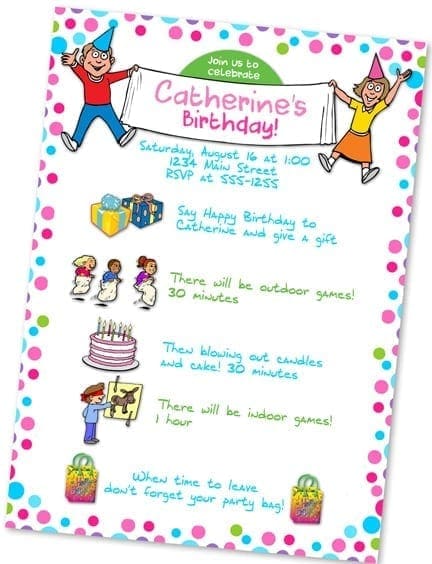 Join us to
celebrate
Catherine's
Birthday!
Saturday, August 16 at 1:00
1234 Main Street
RSVP at 555-1255
Say Happy Birthday to
Catherine and give a gift
There will be outdoor games!
30 minutes
Then blowing out candles
and cake! 30 minutes
There will be indoor games!
1 hour
When time to leave
don't forget your party bag!